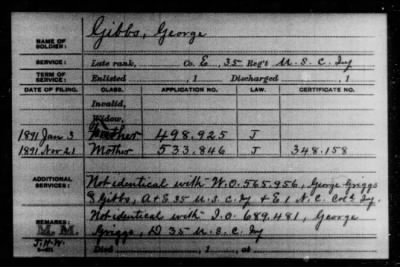 NAME OF SOLDIER: Gibbs, George
SERVICE: Late rank, Co. E, 35 Reg't U.S.C. Inf
TERM OF SERVICE: Enlisted , 1 Discharged , 1
DATE OF FILING. CLASS. APPLICATION NO. LAW. CERTIFICATE NO.
Invalid,
Widow,
1891 Jan 3 Mother 498.925 J
1891 Nov 21 Mother 533.846 J 348.158
ADDITIONAL SERVICES: Not identical with W.O. 565.956, George Griggs
& Gibbs, A & E 35 U.S.C. Inf & E 1 N.C. Cold Inf.
REMARKS: Not identical with I.O. 689.481, George
M.M. Griggs, D 35 U.S.C. Inf
J.H.W. Died , 1 , at